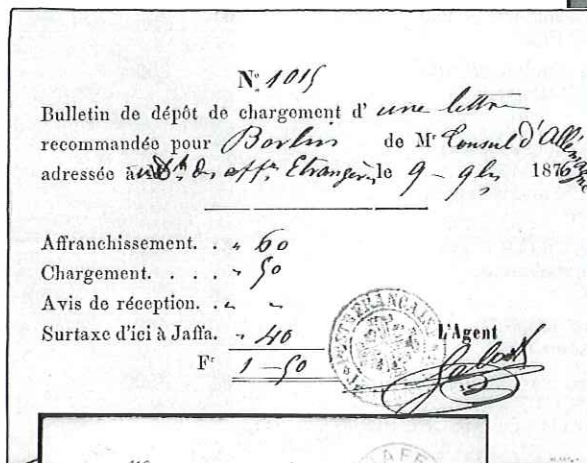 Nº 1015
Bulletin de dépôt de chargement d' une lettre
recommandée pour Berlin de Mr Consul d'Allemagne
adressée au des affres Etrangères le 9 - 9bre 1876
Affranchissement. . „ 60
Chargement. . . . . „ 50
Avis de réception. „ „
Surtaxe d'ici à Jaffa. „ 40
L'Agent
Fr 1 - 50